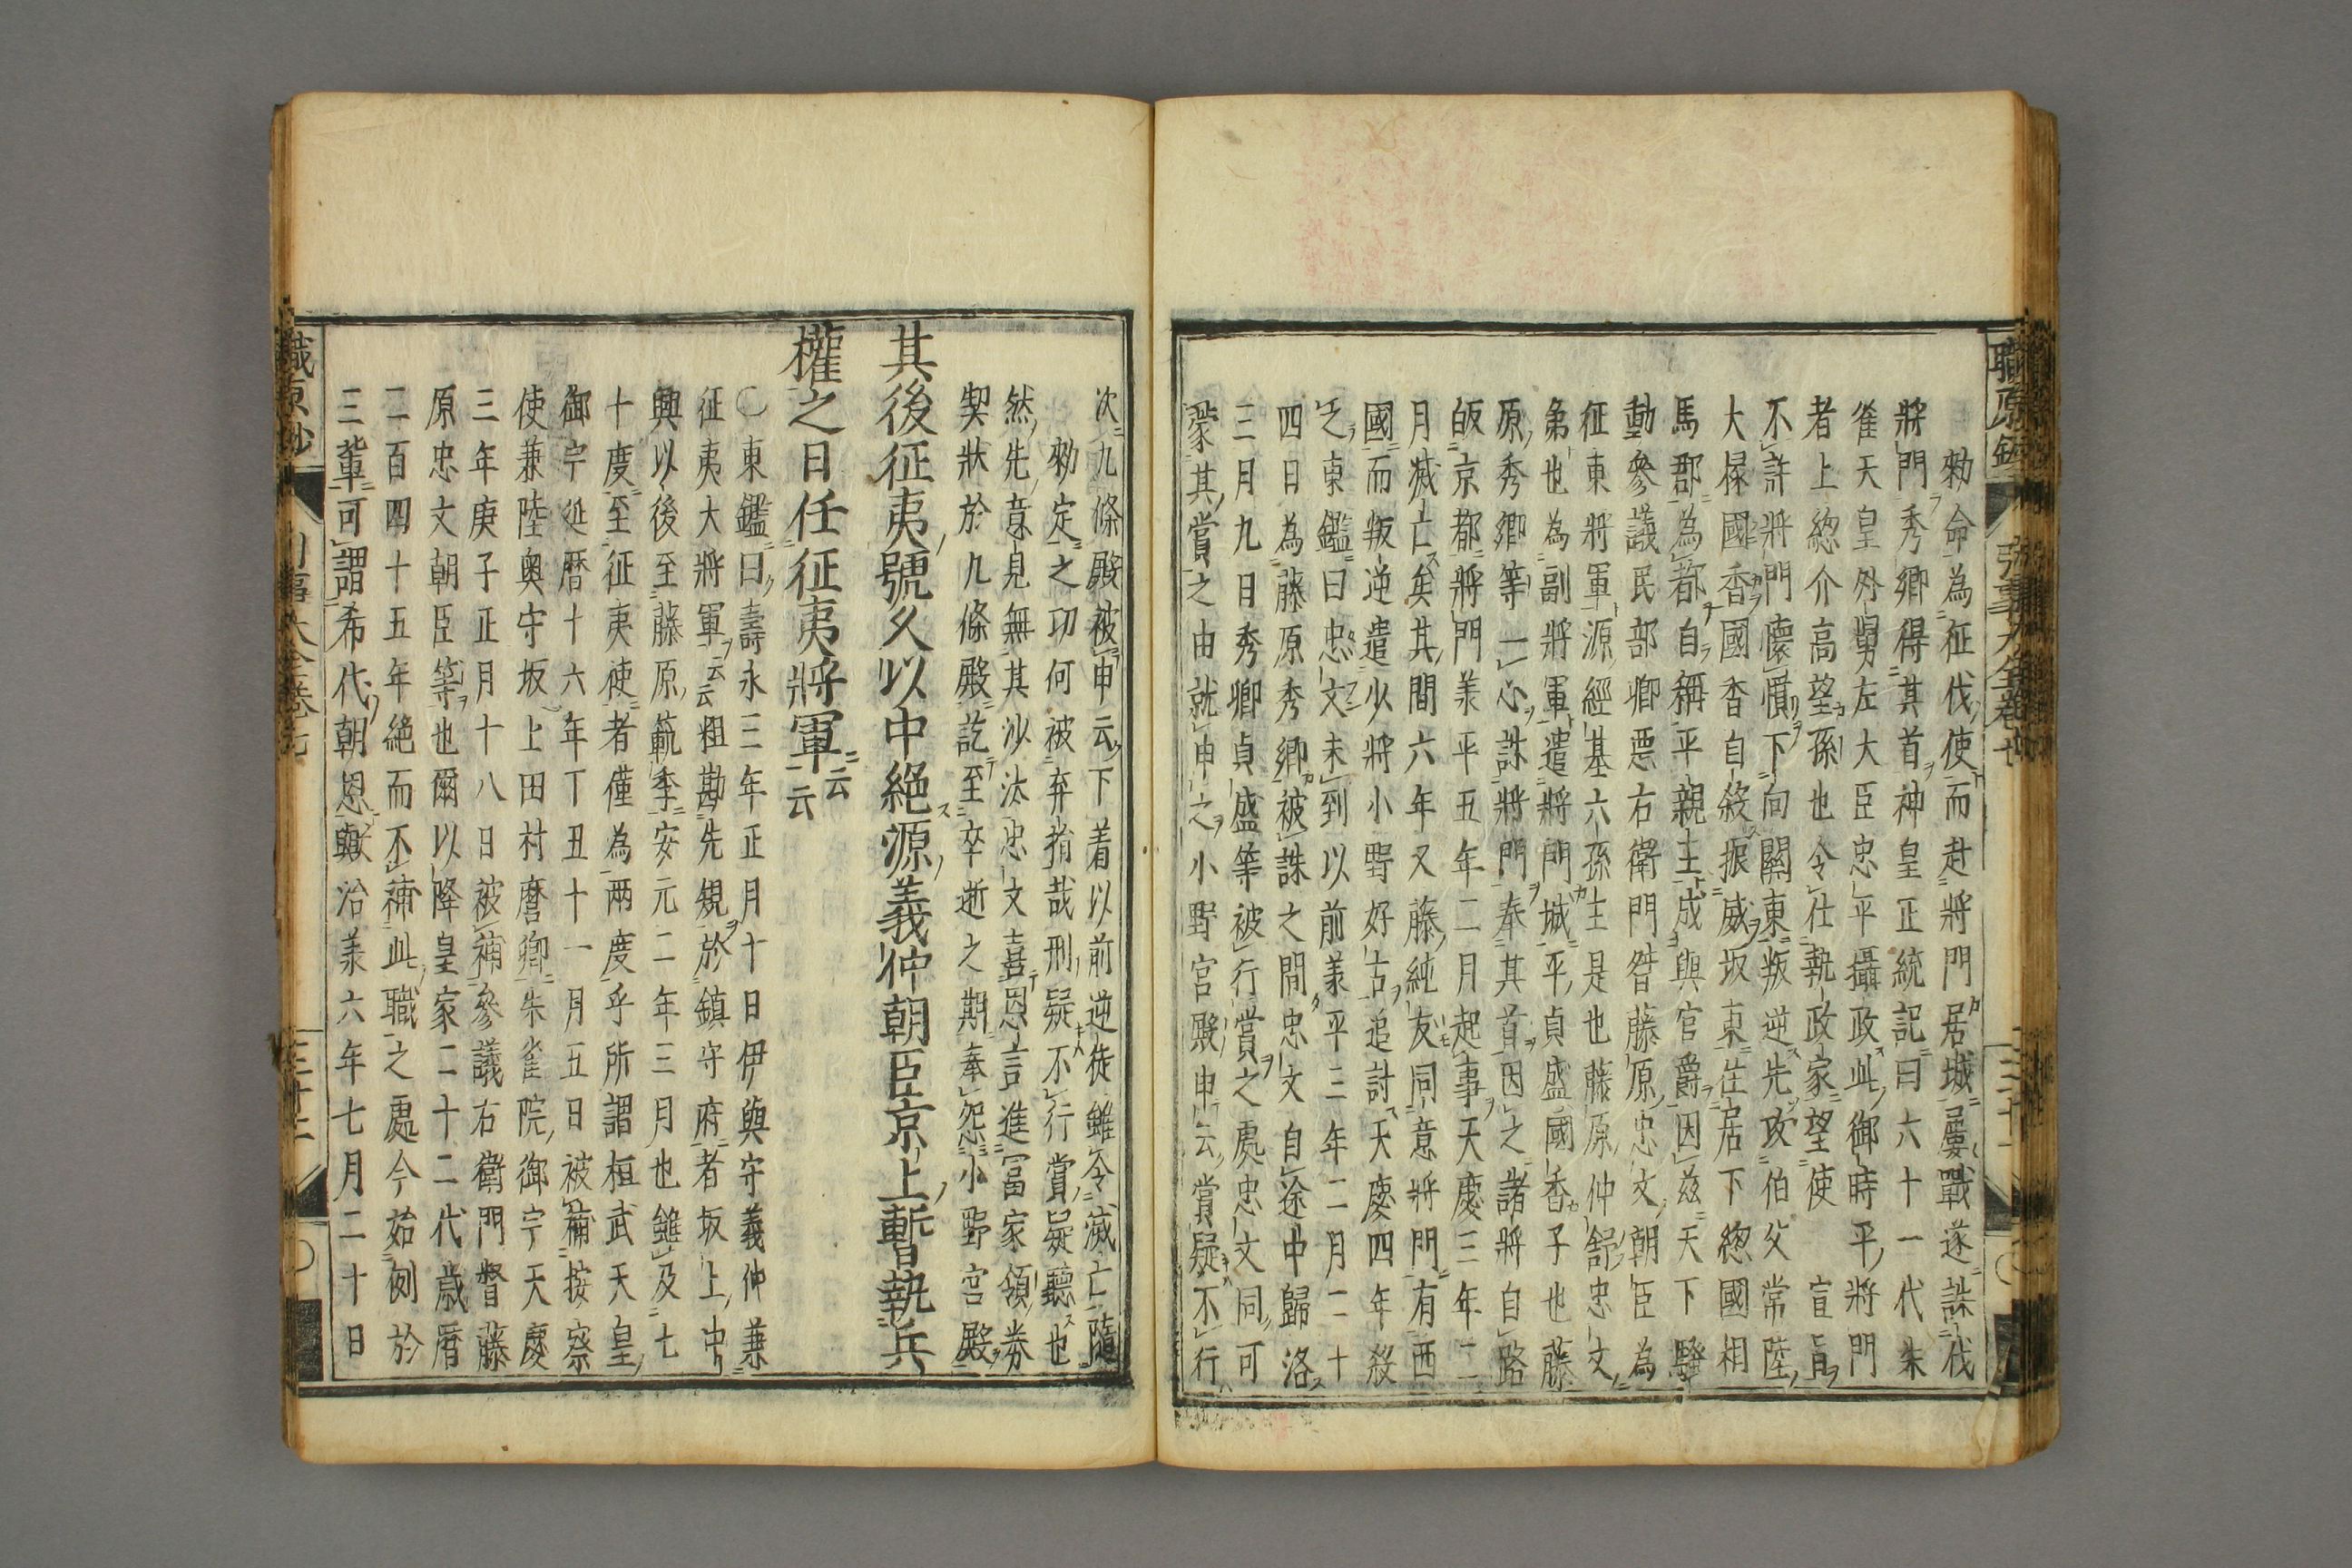 勅命為征伐使而赴將門居城屢戰遂誅伐
將門秀卿得其首神皇正統記曰六十一代朱
雀天皇外舅左大臣忠平攝政此御時平將門
者上総介高望孫也令仕執政家望使宣旨
不許將門懷憤下向關東叛逆先攻伯父常陸
大掾國香國香自殺振威坂東住居下総國相
馬郡為都自稱平親王成與官爵因茲天下騷
動參議民部卿悪右衛門督藤原忠文朝臣為
征東將軍源經基六孫王是也藤原仲舒忠文
弟也為副將軍遣將門城平貞盛國香子也藤
原秀卿等一心誅將門奉其首因之諸將自路
皈京都將門義平五年二月起事天慶三年二
月滅亡矣其間六年又藤純友同意將門有西
國而叛逆遣少將小野好古追討天慶四年殺
之東鑑曰忠文未到以前羕平三年二月二十
四日為藤原秀卿被誅之間忠文自途中歸洛
三月九日秀卿貞盛等被行賞之處忠文同可
蒙其賞之由就申之小野宮殿申云賞疑不行
次九條殿被申云下着以前逆徒雖令滅亡隨
勅定之功何被弃捐哉刑疑不行賞疑聽也
然先意見無其沙汰忠文喜恩言進冨家領券
契狀於九條殿訖至卒逝之期奉怨小野宮殿
其後征夷號久以中絕源義仲朝臣京上暫執兵
權之日任征夷將軍云云
〇東鑑曰壽永三年正月十日伊與守義仲兼
征夷大將軍云云粗勘先規於鎮守府者坂上中
興以後至藤原範季安元二年三月也雖及七
十度至征夷使者僅為兩度乎所謂桓武天皇
御宇延暦十六年丁丑十一月五日被補按察
使兼陸奥守坂上田村麿卿朱雀院御宇天慶
三年庚子正月十八日被補參議右衛門督藤
原忠文朝臣等也爾以降皇家二十二代歳暦
二百四十五年絕而不補此職之處今始例於
三輩可謂希代朝恩歟治羕六年七月二十日